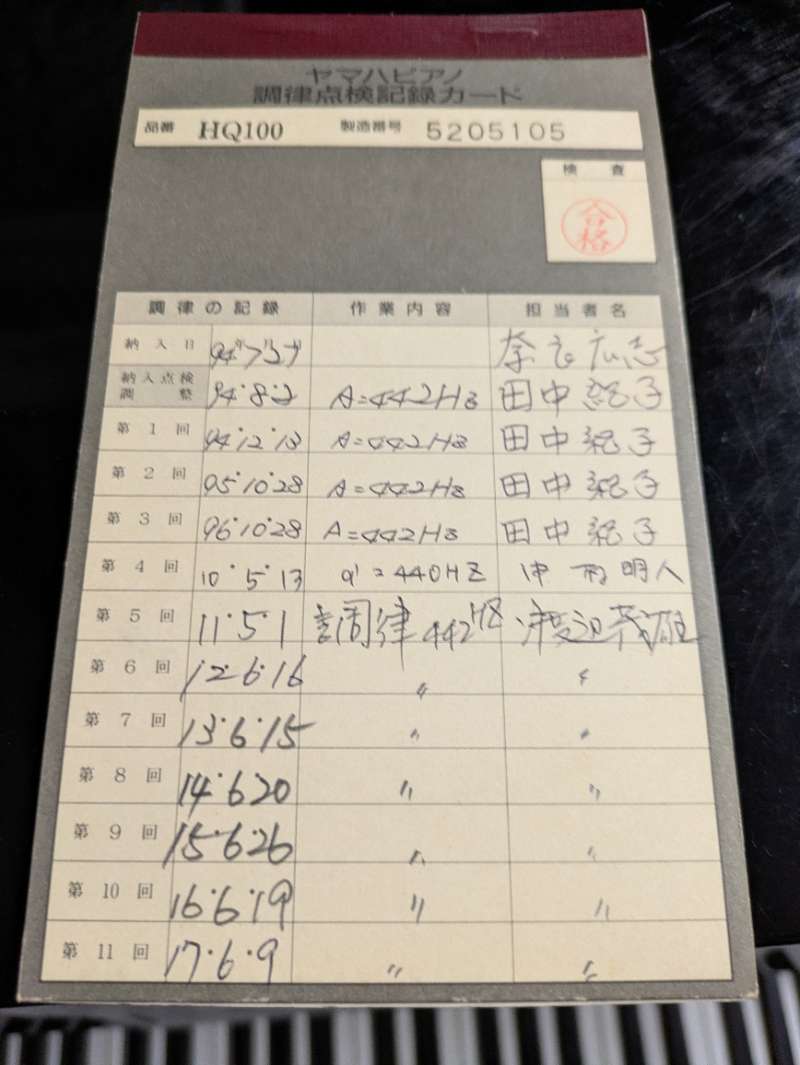 ヤマハピアノ
調律点検記録カード
品番 HQ100 製造番号 5205105
検査
合格
調律の記録 作業内容 担当者名
納入日 94年7月27
納入点検調整 94・8・2 A=442Hz 田中紀子
第1回 94・12・13 A=442Hz 田中紀子
第2回 95・10・28 A=442Hz 田中紀子
第3回 96・10・28 A=442Hz 田中紀子
第4回 10・5・13 a'=440HZ 中村明人
第5回 11・5・1 調律442HZ 渡辺茂雄
第6回 12・6・16 〃 〃
第7回 13・6・15 〃 〃
第8回 14・6 20 〃 〃
第9回 15・6・26 〃 〃
第10回 16・6・19 〃 〃
第11回 17・6・9 〃 〃